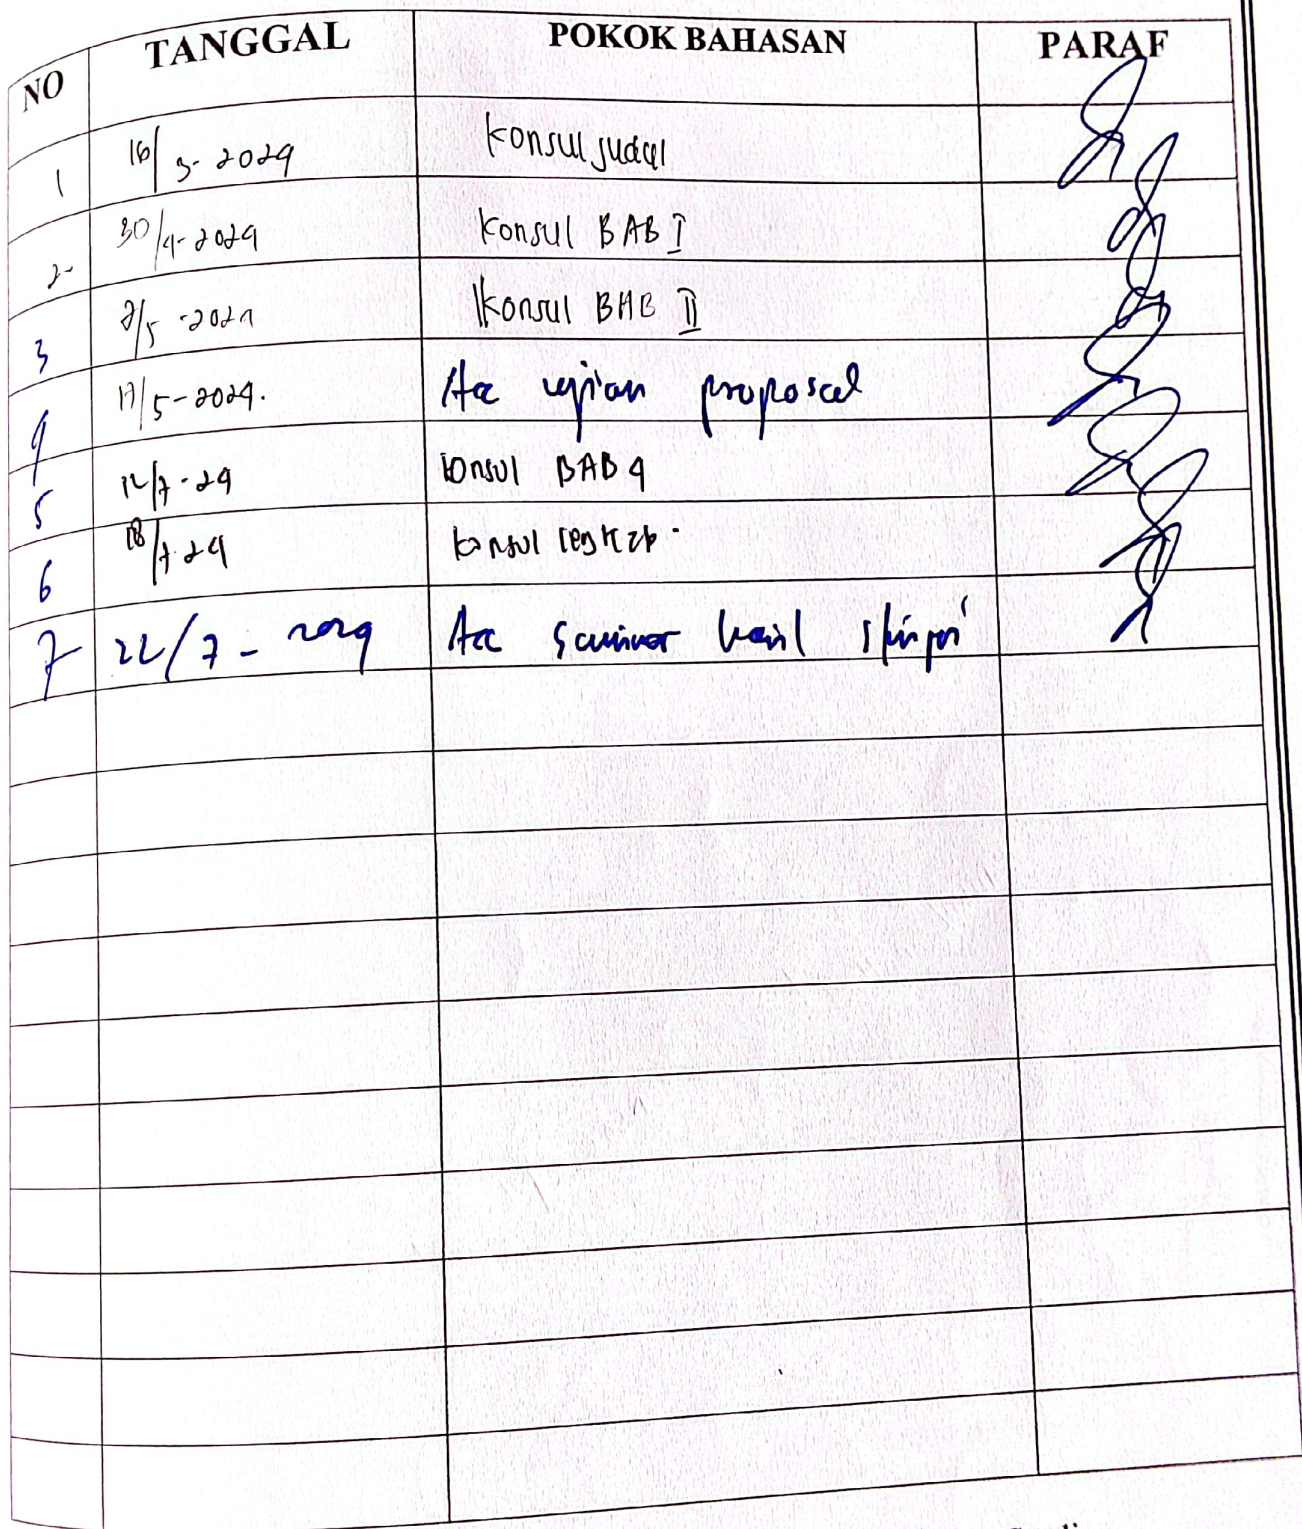 NO TANGGAL POKOK BAHASAN PARAF
1 16/3-2024 Konsul judul
2- 30/4-2024 Konsul BAB I
3 2/5-2024 Konsul BAB II
4 17/5-2024. Acc ujian proposal
5 12/7-24 Konsul BAB 4
6 18/7-24 konsul
7 22/7-2024 Acc seminar hasil skripsi